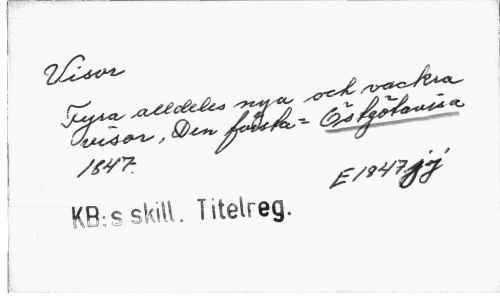 Visor
Fyra alldeles nya och vackra
visor, Den första = Östgötavisa
1847.
E 1847 jj
KB:s skill. Titelreg.